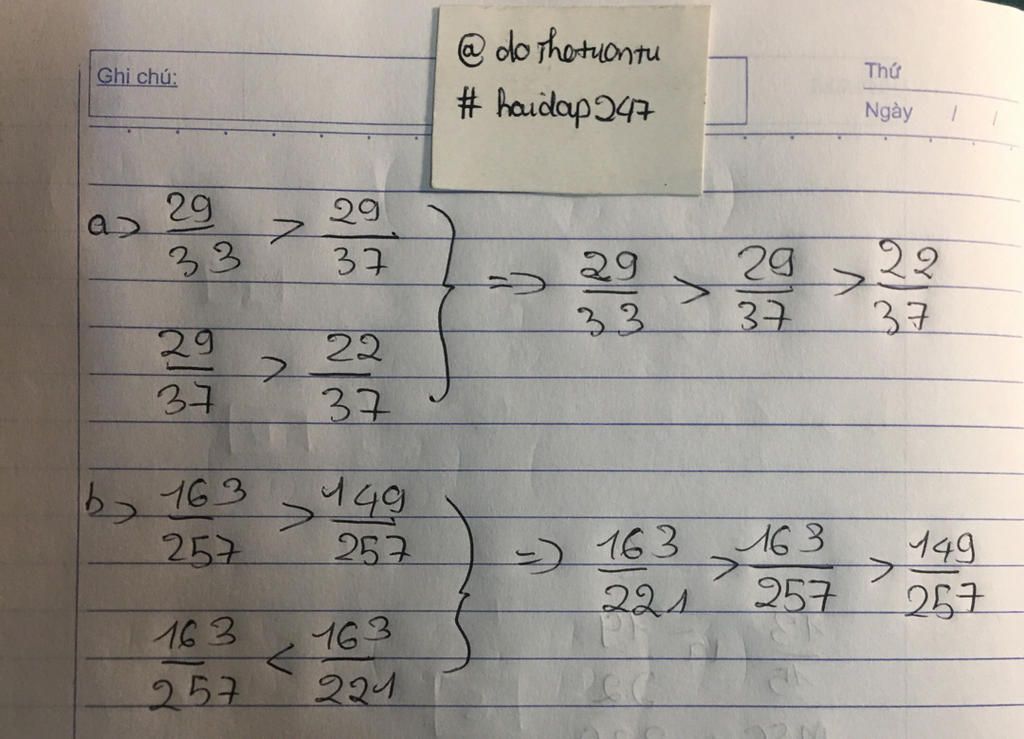 @ dothatuantu
# hoidap247
Ghi chú:
Thứ
Ngày / /
a> 29/33 > 29/37
29/37 > 22/37
=> 29/33 > 29/37 > 22/37
b> 163/257 > 149/257
163/257 < 163/221
=> 163/221 > 163/257 > 149/257